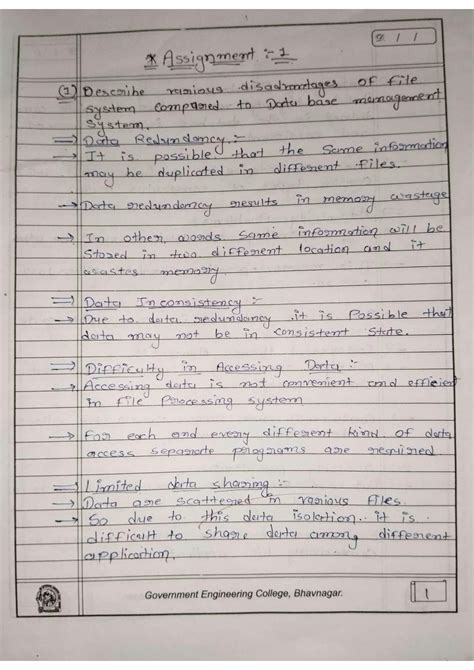 * Assignment :- 1
(1) Describe various disadvantages of file
system compared to Data base management
system.
⇒ Data Redundancy :-
→ It is possible that the same information
may be duplicated in different files.
→ Data redundancy results in memory wastage
→ In other words same information will be
stored in two different location and it
wastes memory
⇒ Data Inconsistency :-
→ Due to data redundancy it is possible that
data may not be in consistent state.
⇒ Difficulty in Accessing Data :-
→ Accessing data is not convenient and efficient
in file processing system
→ For each and every different kind of data
access separate programs are required
⇒ Limited data sharing :-
→ Data are scattered in various files.
→ So due to this data isolation it is
difficult to share data among different
application.
Government Engineering College, Bhavnagar.
1